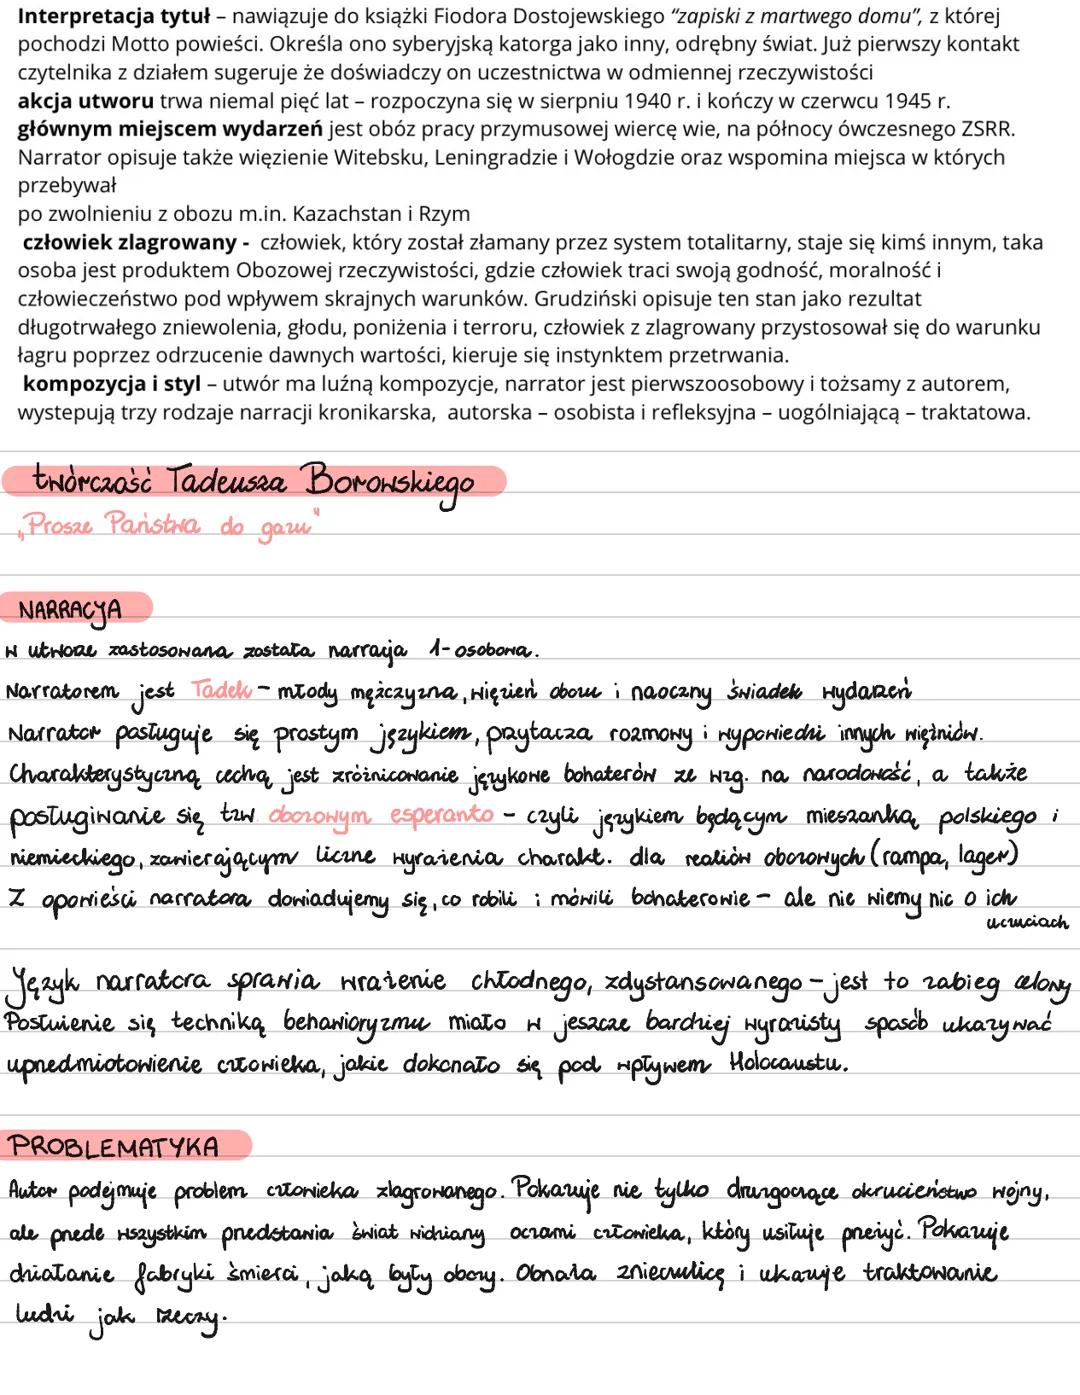 Interpretacja tytuł – nawiązuje do książki Fiodora Dostojewskiego “zapiski z martwego domu”, z której
pochodzi Motto powieści. Określa ono syberyjską katorga jako inny, odrębny świat. Już pierwszy kontakt
czytelnika z działem sugeruje że doświadczy on uczestnictwa w odmiennej rzeczywistości
akcja utworu trwa niemal pięć lat – rozpoczyna się w sierpniu 1940 r. i kończy w czerwcu 1945 r.
głównym miejscem wydarzeń jest obóz pracy przymusowej wiercę wie, na północy ówczesnego ZSRR.
Narrator opisuje także więzienie Witebsku, Leningradzie i Wołogdzie oraz wspomina miejsca w których
przebywał
po zwolnieniu z obozu m.in. Kazachstan i Rzym
człowiek zlagrowany - człowiek, który został złamany przez system totalitarny, staje się kimś innym, taka
osoba jest produktem Obozowej rzeczywistości, gdzie człowiek traci swoją godność, moralność i
człowieczeństwo pod wpływem skrajnych warunków. Grudziński opisuje ten stan jako rezultat
długotrwałego zniewolenia, głodu, poniżenia i terroru, człowiek z zlagrowany przystosował się do warunku
łagru poprzez odrzucenie dawnych wartości, kieruje się instynktem przetrwania.
kompozycja i styl – utwór ma luźną kompozycje, narrator jest pierwszoosobowy i tożsamy z autorem,
wystepują trzy rodzaje narracji kronikarska, autorska – osobista i refleksyjna – uogólniającą – traktatowa.
twórczość Tadeusza Borowskiego
„Prosze Państwa do gazu"
NARRACJA
w utworze zastosowana została narracja 1-osobowa.
Narratorem jest Tadek – młody mężczyzna, więzień obozu i naoczny świadek wydarzeń
Narrator posługuje się prostym językiem, przytacza rozmowy i wypowiedzi innych więźniów.
Charakterystyczną cechą jest zróżnicowanie językowe bohaterów ze wzg. na narodowość, a także
posługiwanie się tzw. obozowym esperanto – czyli językiem będącym mieszanką polskiego i
niemieckiego, zawierającym liczne wyrażenia charakt. dla realiów obozowych (rampa, lager)
Z opowieści narratora dowiadujemy się, co robili i mówili bohaterowie – ale nie wiemy nic o ich
uczuciach
Język narratora sprawia wrażenie chłodnego, zdystansowanego – jest to zabieg celowy
Posłużenie się techniką behawioryzmu miało w jeszcze bardziej wyrazisty sposób ukazywać
uprzedmiotowienie człowieka, jakie dokonało się pod wpływem Holocaustu.
PROBLEMATYKA
Autor podejmuje problem człowieka zlagrowanego. Pokazuje nie tylko druzgocące okrucieństwo wojny,
ale przede wszystkim przedstawia świat widziany oczami człowieka, który usiłuje przeżyć. Pokazuje
działanie fabryki śmierci, jaką były obozy. Obnaża znieczulicę i ukazuje traktowanie
ludzi jak rzeczy.